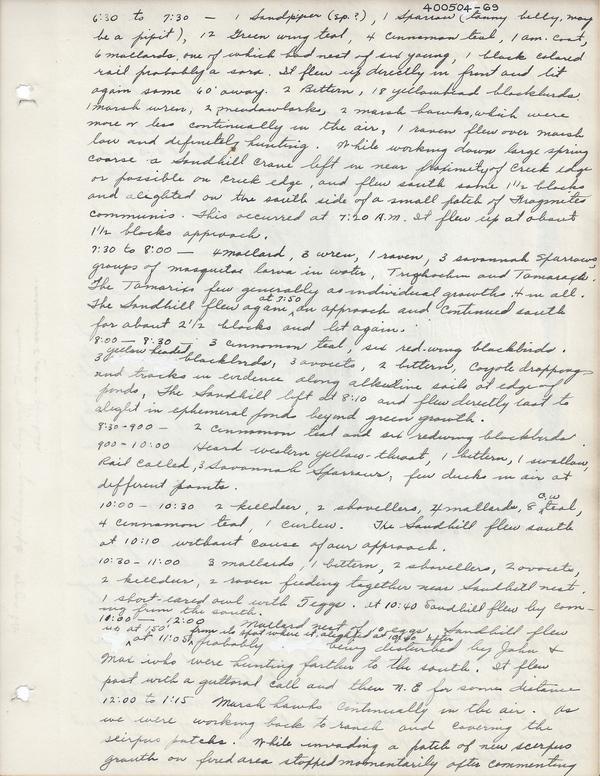 400504-69
6:30 to 7:30 — 1 Sandpiper (sp.?), 1 Sparrow (tawny belly, may
be a pipit), 12 Green wing teal, 4 cinnamon teal, 1 am. coot,
6 mallards, one of which had nest of six young, 1 black colored
rail probably a sora. It flew up directly in front and lit
again some 60' away. 2 Bittern, 18 yellowhead blackbirds.
1 marsh wren, 2 meadowlarks, 2 marsh hawks, which were
more or less continually in the air, 1 raven flew over marsh
low and definitely hunting. While working down large spring
coarse a Sandhill Crane left in near proximity of creek edge
or possible on creek edge, and flew south some 1½ blocks
and alighted on the south side of a small patch of Fragmites
communis. This occurred at 7:20 A.M. It flew up at about
1½ blocks approach.
7:30 to 8:00 — 4 mallard, 3 wren, 1 raven, 3 savannah sparrows,
groups of mosquitae larva in water, Triglochin and Tamarack.
The Tamarix few generally as individual growths, 4 in all.
The Sandhill flew again at 7:50 on approach and continued south
for about 2½ blocks and let again.
8:00 — 8:30 — 3 cinnamon teal, six red-wing blackbirds.
3 yellow headed blackbirds, 3 avocets, 2 bittern, Coyote droppings
and tracks in evidence along alkaline soils at edge of
ponds, The Sandhill left at 8:10 and flew directly east to
alight in ephemeral ponds beyond green growth.
8:30-900 — 2 cinnamon teal and six redwing blackbirds.
900 - 10:00 Heard western yellow-throat, 1 bittern, 1 swallow,
Rail called, 3 Savannah Sparrows, few ducks in air at
different points.
10:00 - 10:30 2 killdeer, 2 shovellers, 4 mallards, 8 G.W. teal,
4 cinnamon teal, 1 curlew. The Sandhill flew south
at 10:10 without cause of our approach.
10:30 - 11:00 3 mallards, 1 bittern, 2 shovellers, 2 avocets,
2 killdeer, 2 raven feeding together near Sandhill nest.
1 short-eared owl with 7 eggs. at 10:40 Sandhill flew by com-
ing from the south.
— 12:00 Mallard nest of 10 eggs. Sandhill flew
up at 11:05 from its spot where it alighted at 10:40 after
probably being disturbed by John &
Mac who were hunting farther to the south. It flew
past with a guttoral call and then N.E for some distance
12:00 to 1:15 Marsh hawks continually in the air. As
we were working back to ranch and covering the
scirpus patches. While invading a patch of new scirpus
growth on fired area stopped momentarily after commenting